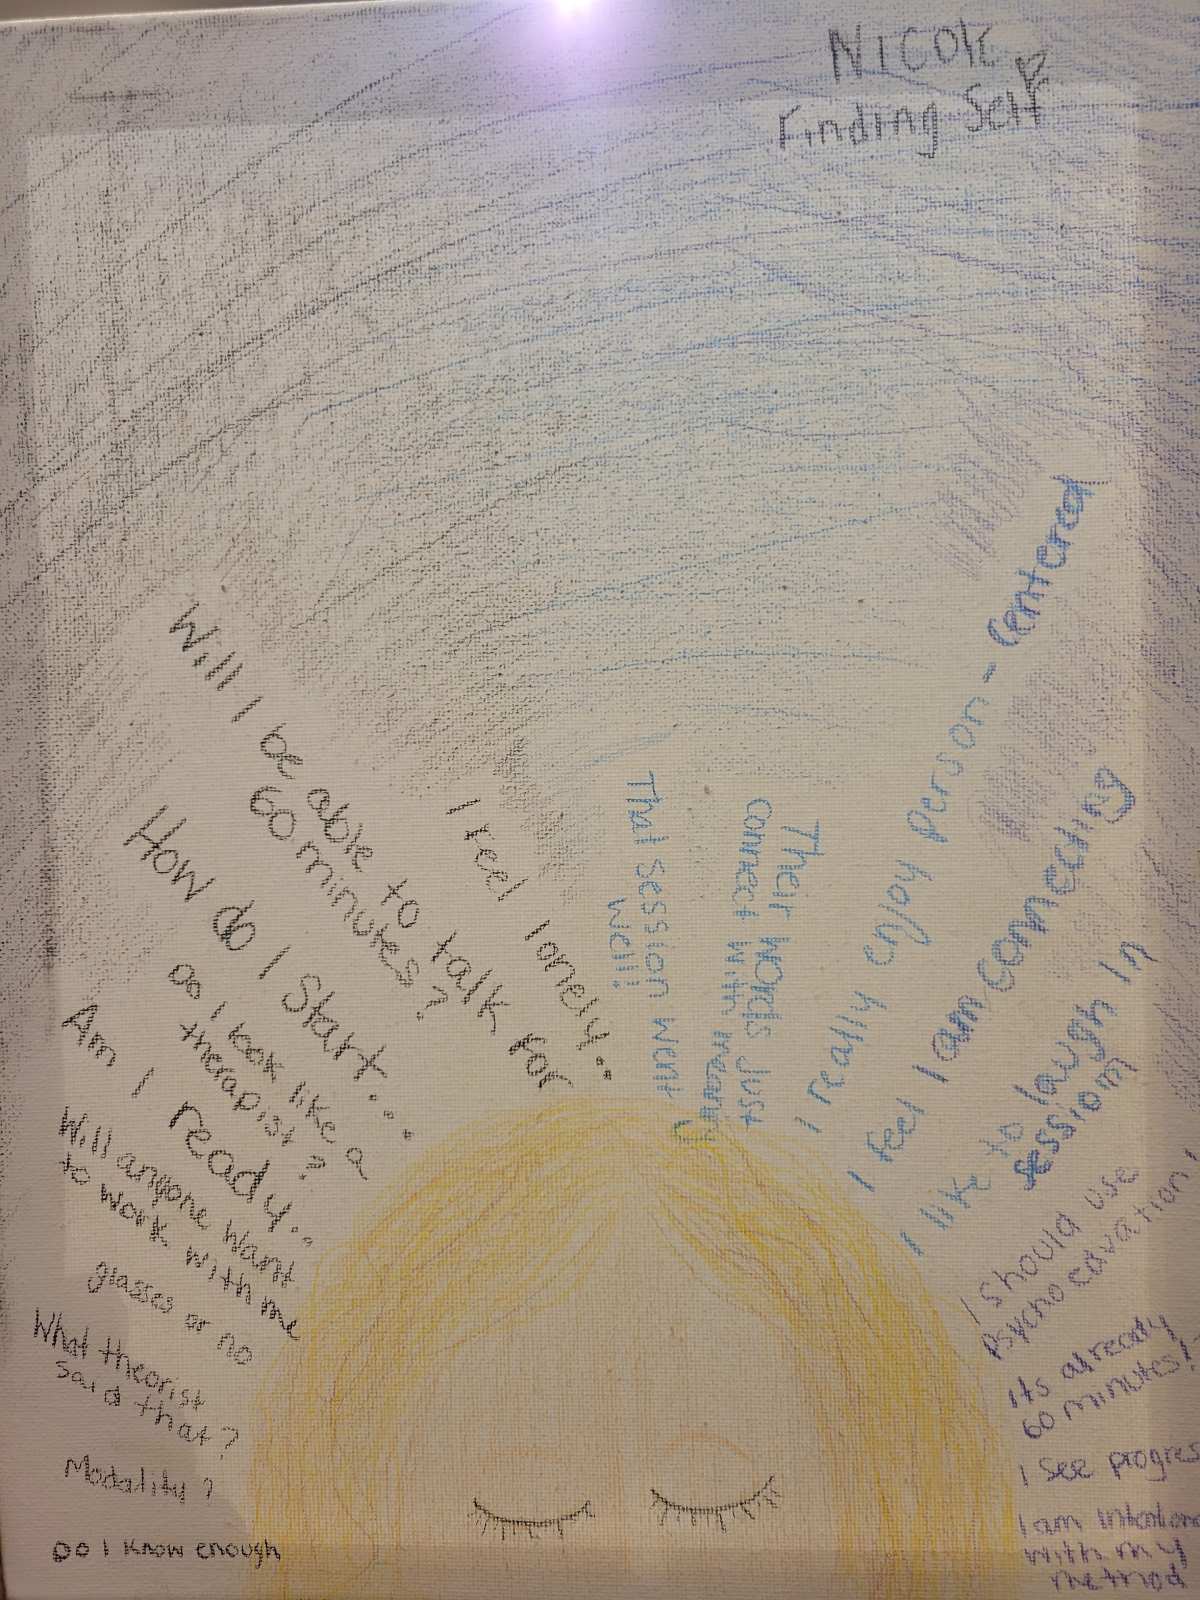 Nicole P
Finding Self
Will I be able to talk for
60 minutes?
I feel lonely...
How do I start...
do I look like a
therapist?
Am I ready...
Will anyone want
to work with me
glasses or no
What theorist
said that?
Modality?
Do I know enough
That session went
well!
Their words just
connect with
I really enjoy person-centered
I feel I am connecting
I like to laugh in
session
I should use
Psychoeducation!
its already
60 minutes!
I see progres
I am intentiona
with my
method